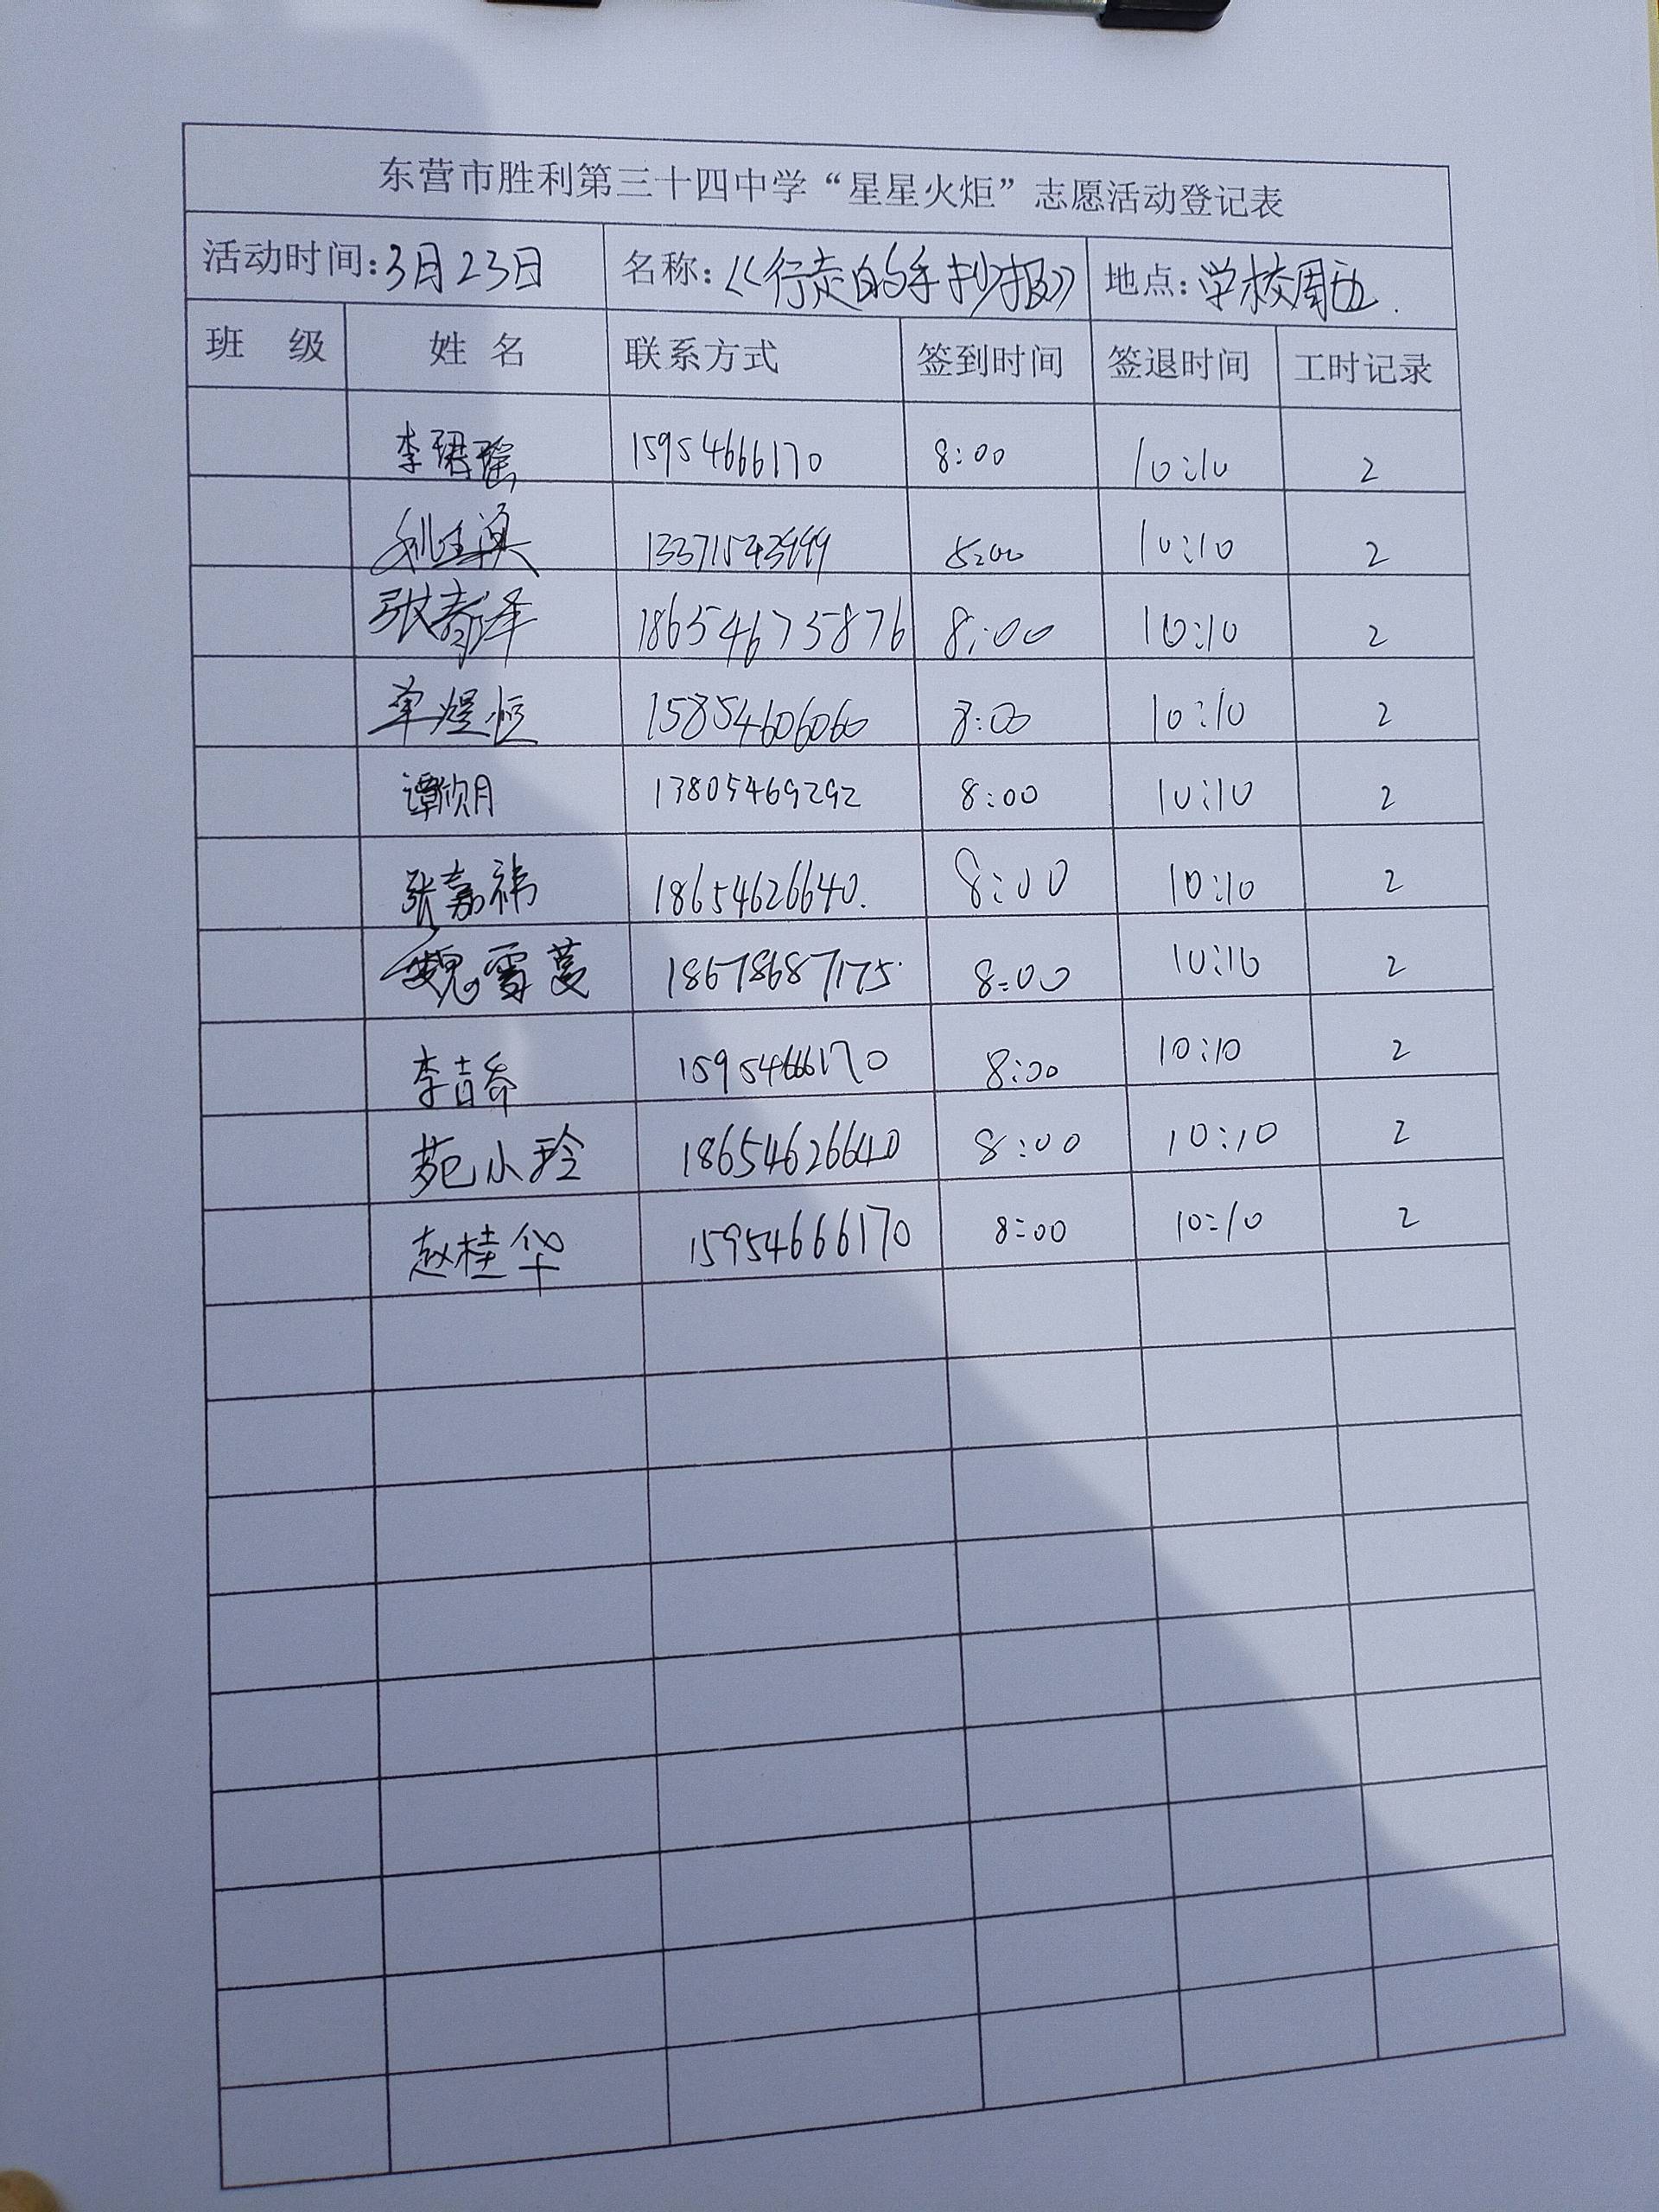 东营市胜利第三十四中学“星星火炬”志愿活动登记表
活动时间:3月23日 名称:《行走的手抄报》 地点:学校周边.
班 级 姓 名 联系方式 签到时间 签退时间 工时记录
李珺瑶 15954666170 8:00 10:10 2
13371543999 8:00 10:10 2
张春泽 186546735876 8:00 10:10 2
单煜恒 15854606060 8:00 10:10 2
谭欣月 13805469292 8:00 10:10 2
张嘉祎 18654626640. 8:00 10:10 2
魏雪蔓 18678687175. 8:00 10:10 2
李吉乔 15954666170 8:00 10:10 2
苑小玲 18654626640 8:00 10:10 2
赵桂华 15954666170 8:00 10:10 2